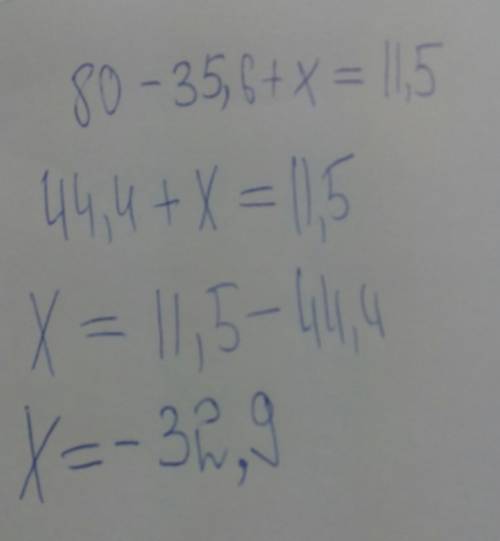 80 - 35,6 + x = 11,5
44,4 + x = 11,5
x = 11,5 - 44,4
x = - 32,9